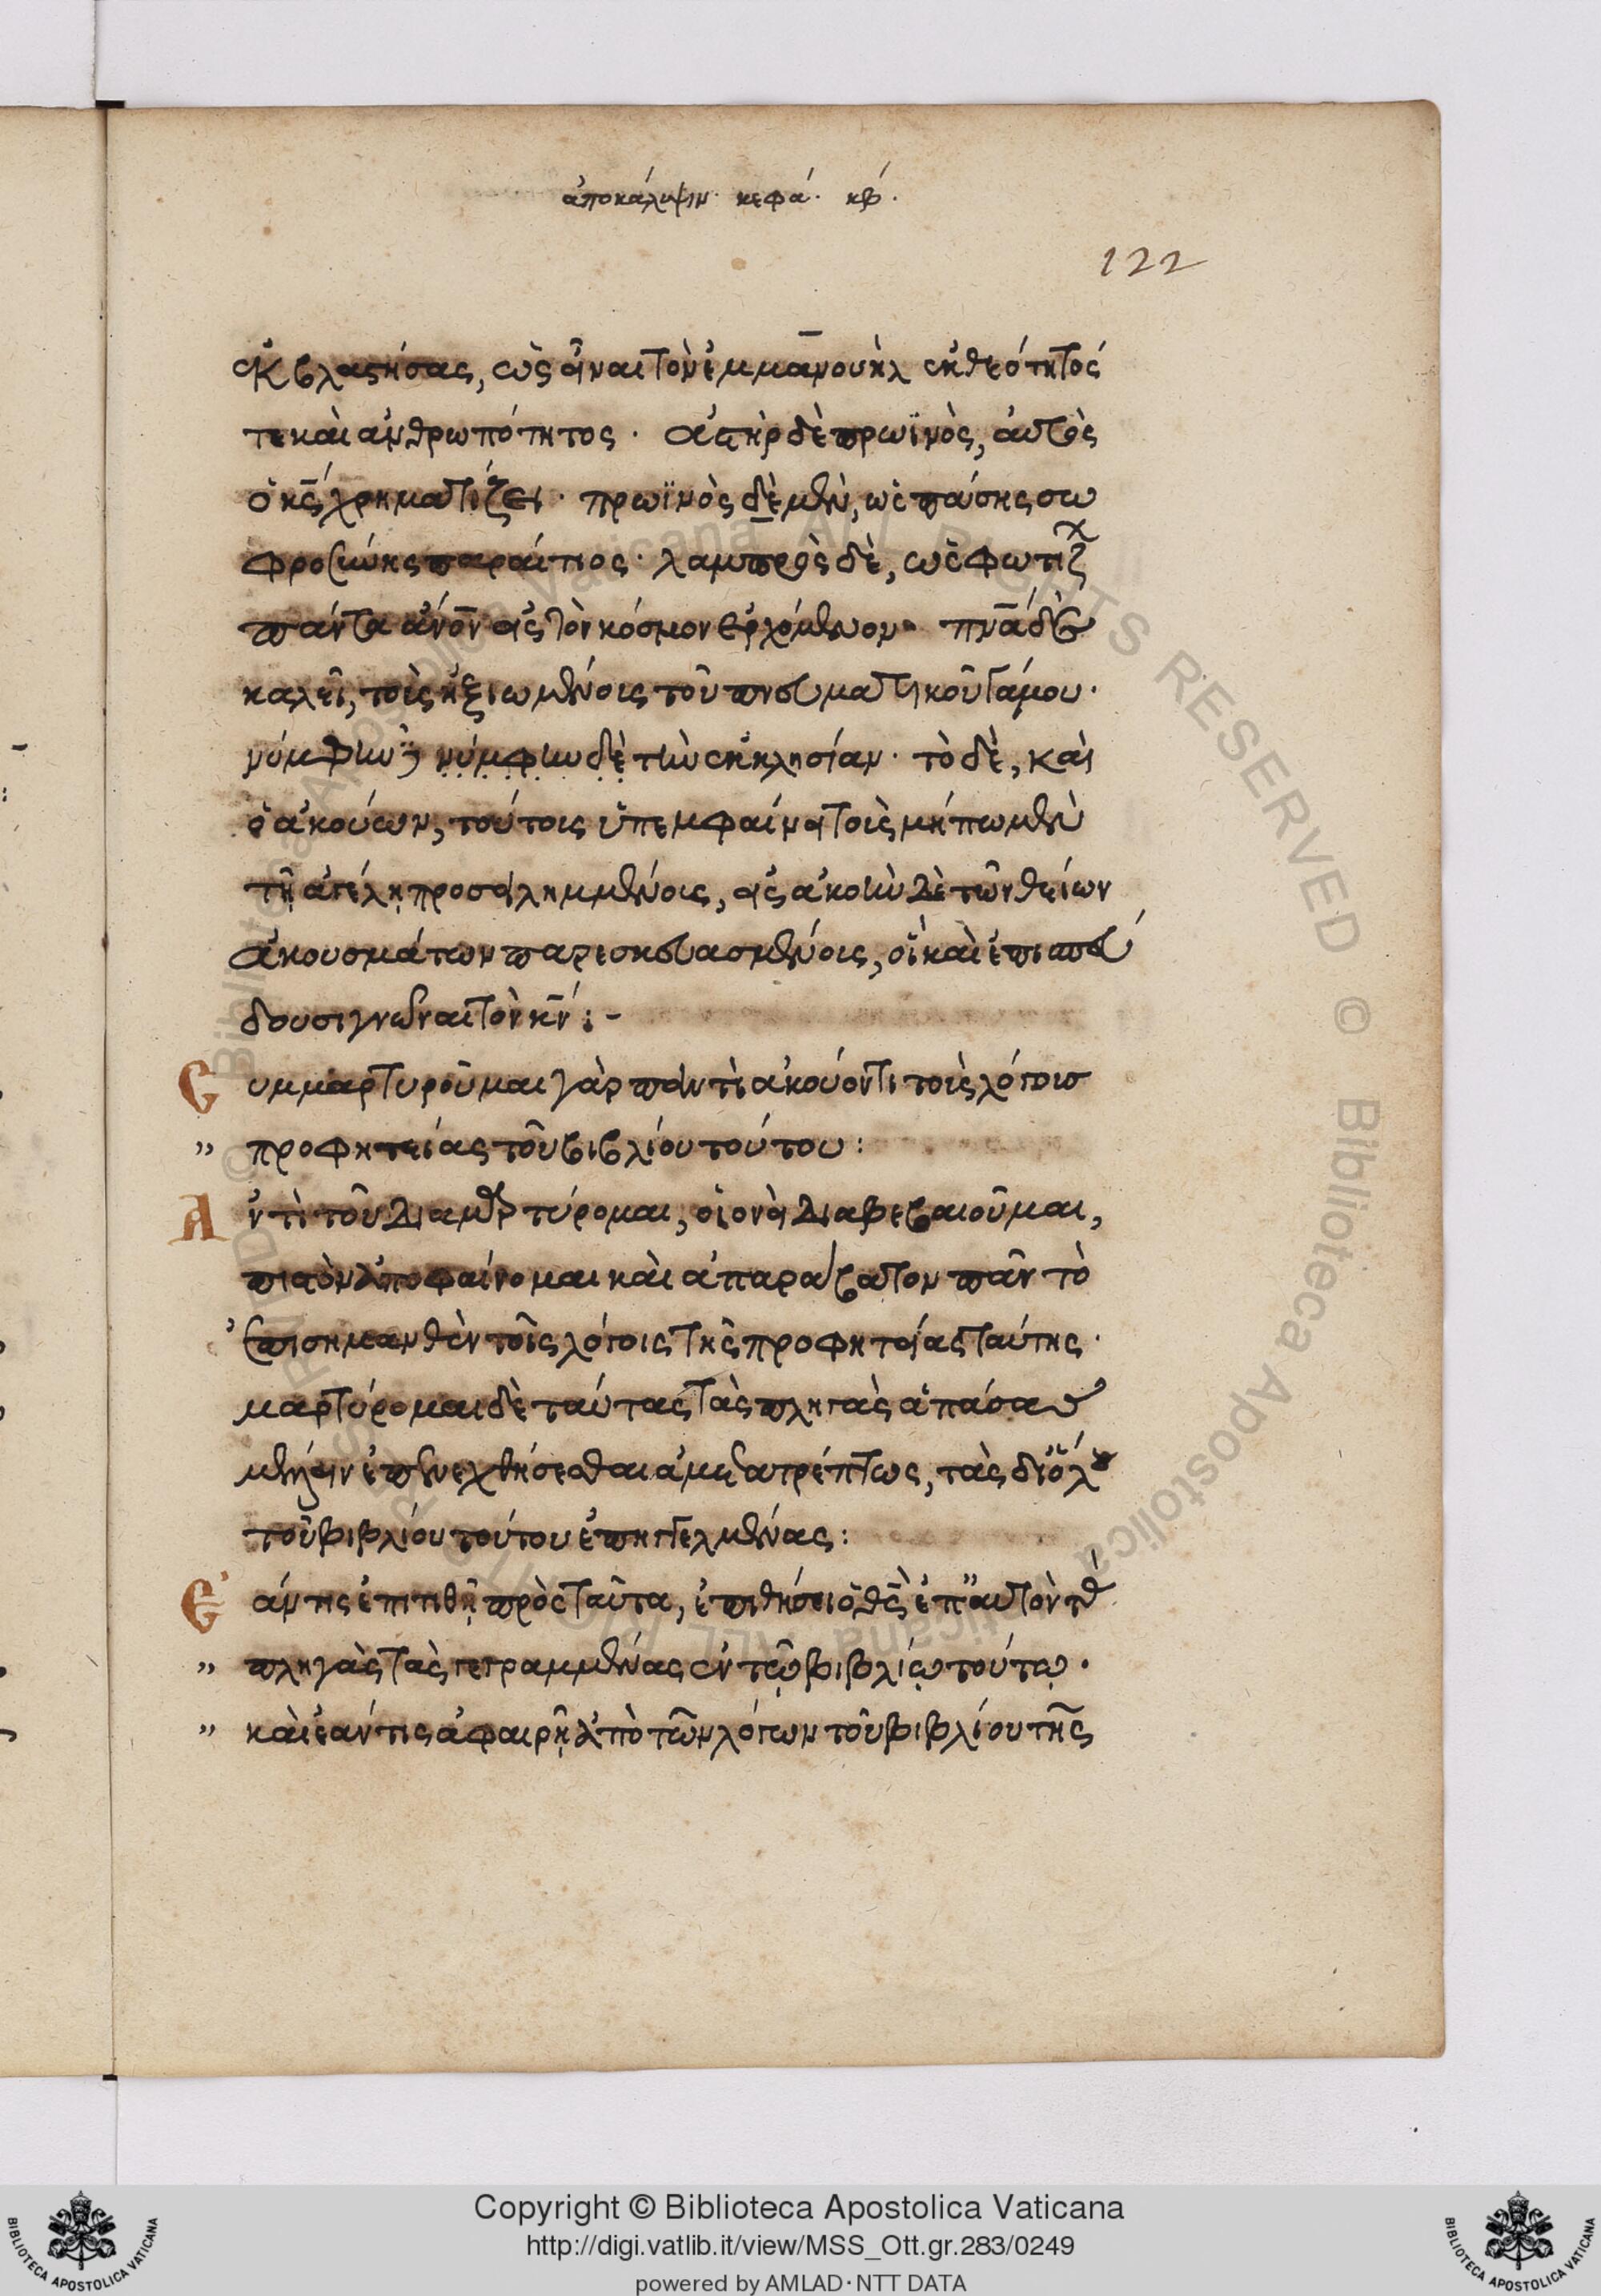 ἀποκάλυψιν. κεφά. κβ.
122
ἐκβλαστήσας, ὡς εἶναι τὸν ἐμμανουὴλ ἐκ θεότητός
τε καὶ ἀνθρωπότητος. ἀστὴρ δὲ πρωϊνὸς, αὐτὸς
ὁ κς χρηματίζει. πρωϊνὸς δὲ μὲν, ὡς πάσης σω
φροσύνης παραίτιος. λαμπρὸς δὲ, ὡς φωτίζ
πάντα ἀνον εἰς τὸν κόσμον ἐρχόμενον. πνα δὲ
καλεῖ, τοῖς ἠξιωμένοις τοῦ πνευματικοῦ γάμου.
νύμφην νύμφην δὲ τὴν ἐκκλησίαν. τὸ δὲ, καὶ
ὁ ἀκούων, τούτοις ὑπεμφαίνει τοῖς μήπω μὲν
τῇ ἀγέλῃ προσειλημμένοις, εἰς ἀκοὴν δὲ τῶν θείων
ἀκουσμάτων παρεσκευασμένοις, οἳ καὶ ἐπισπεύ
δουσι γνῶναι τὸν κν:-
Συμμαρτυροῦμαι γὰρ παντὶ ἀκούοντι τοῖς λόγοις
" προφητείας τοῦ βιβλίου τούτου:
Ἀντὶ τοῦ διαμαρτύρομαι, οἱονεὶ διαβεβαιοῦμαι,
πιστὸν ἀποφαίνομαι καὶ ἀπαράβατον πᾶν τὸ
ἐπισημανθὲν τοῖς λόγοις τῆς προφητείας ταύτης.
μαρτύρομαι δὲ ταύτας τὰς πληγὰς ἁπάσας
μὲν ἐπενεχθήσεσθαι ἀμετατρέπτως, τὰς δι' ὅλου
τοῦ βιβλίου τούτου ἐπηγγελμένας:
Ἐάν τις ἐπιτιθῇ πρὸς ταῦτα, ἐπιθήσει ὁ θς ἐπ' αὐτὸν τὰς
" πληγὰς τὰς γεγραμμένας ἐν τῷ βιβλίῳ τούτῳ.
" καὶ ἐάν τις ἀφαιρῇ ἀπὸ τῶν λόγων τοῦ βιβλίου τῆς
Copyright © Biblioteca Apostolica Vaticana
http://digi.vatlib.it/view/MSS_Ott.gr.283/0249
powered by AMLAD·NTT DATA